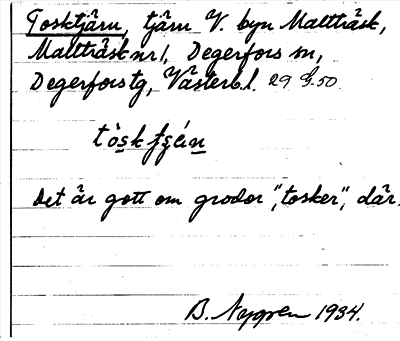 Tosktjärn, tjärn V. byn Maltträsk,
Maltträsk nr 1, Degerfors sn,
Degerfors tg, Västerb. l. 29 G. 50.
tòskʃɛ́n
Det är gott om grodor, "tosker", där.
B. Nygren 1934.